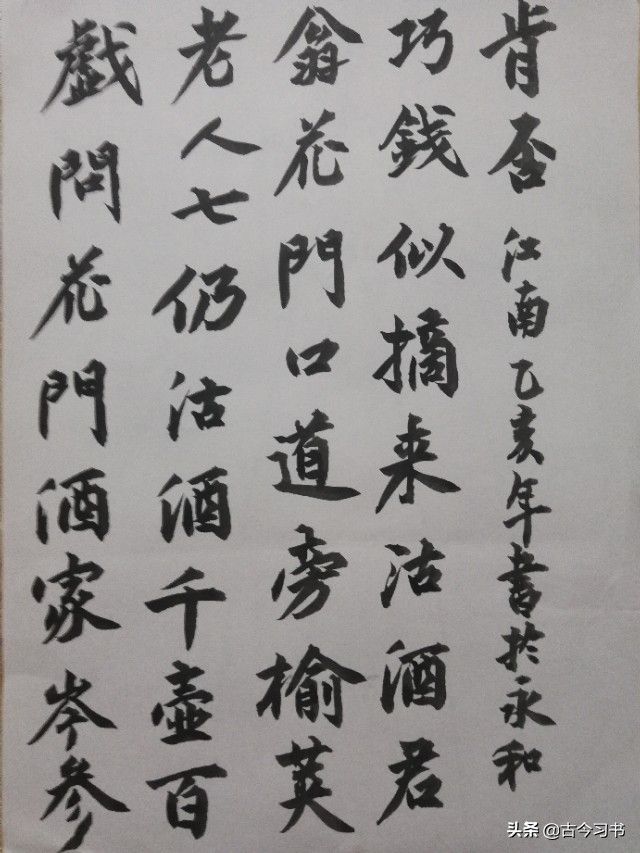 戲問花門酒家岑參
老人七仍沽酒千壺百
翁花門口道旁榆莢
巧錢似摘来沽酒君
肯否江南乙亥年書於永和
头条@古今习书